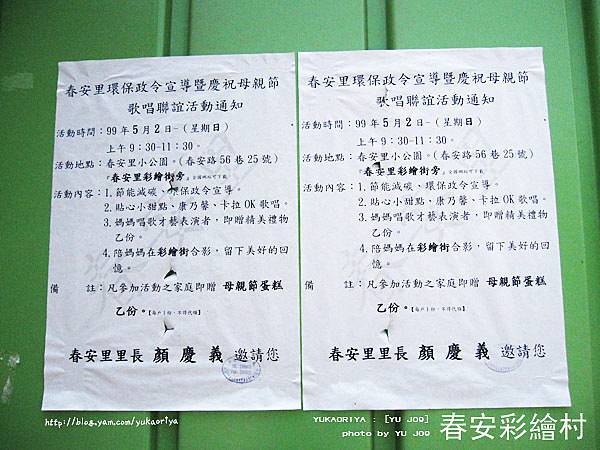 春安里環保政令宣導暨慶祝母親節
歌唱聯誼活動通知
活動時間：99年5月2日-（星期日）
上午9:30-11:30。
活動地點：春安里小公園。（春安路56巷25號）
『春安里彩繪街旁』全國網站可下載
活動內容：1.節能減碳、環保政令宣導。
2.貼心小甜點、康乃馨、卡拉OK歌唱。
3.媽媽唱歌才藝表演者，即贈精美禮物
乙份。
4.陪媽媽在彩繪街合影，留下美好的回
憶。
備　　註：凡參加活動之家庭即贈 母親節蛋糕
乙份。【每戶1份，不得代領】
春安里里長 顏慶義 邀請您
春安里環保政令宣導暨慶祝母親節
歌唱聯誼活動通知
活動時間：99年5月2日-（星期日）
上午9:30-11:30。
活動地點：春安里小公園。（春安路56巷25號）
『春安里彩繪街旁』全國網站可下載
活動內容：1.節能減碳、環保政令宣導。
2.貼心小甜點、康乃馨、卡拉OK歌唱。
3.媽媽唱歌才藝表演者，即贈精美禮物
乙份。
4.陪媽媽在彩繪街合影，留下美好的回
憶。
備　　註：凡參加活動之家庭即贈 母親節蛋糕
乙份。【每戶1份，不得代領】
春安里里長 顏慶義 邀請您
http://blog.yam.com/yukaoriya
YUKAORIYA : [YU JOQ]
photo by YU JOQ
春安彩繪村